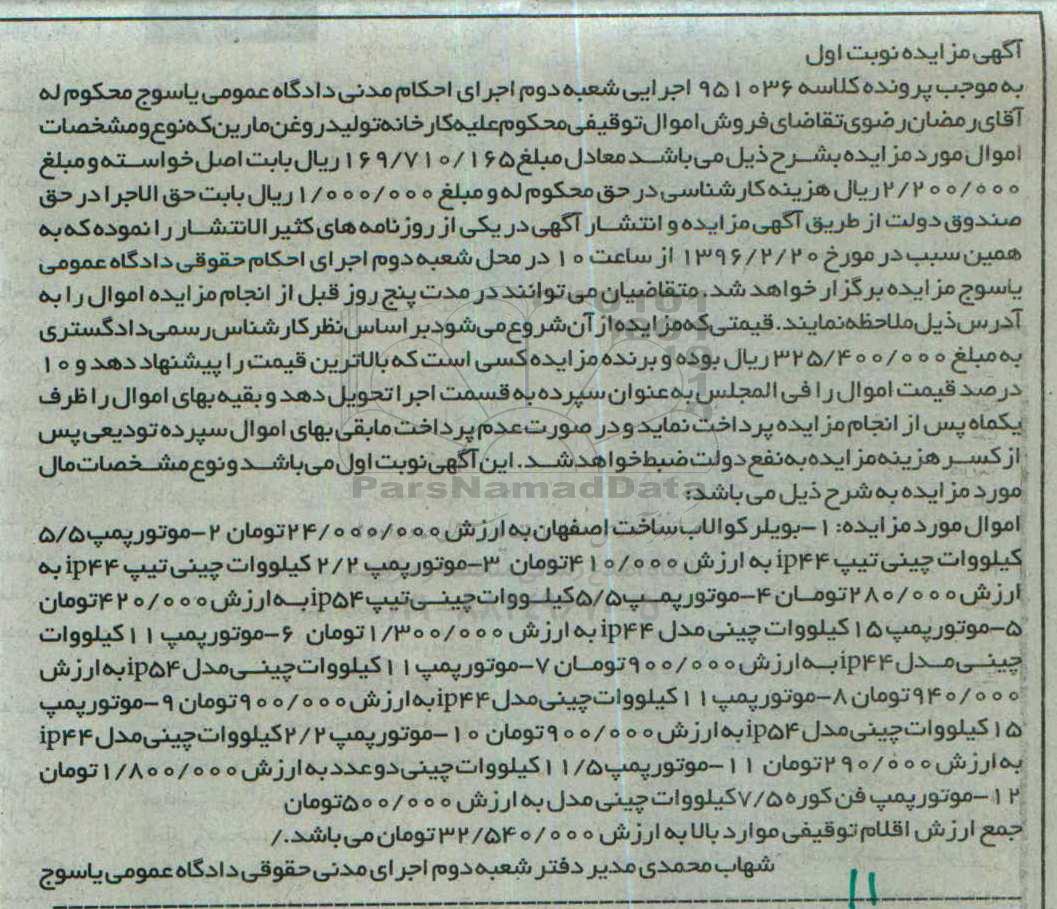 آگهی مزایده نوبت اول
به موجب پرونده کلاسه ۹۵۱۰۳۶ اجرایی شعبه دوم اجرای احکام مدنی دادگاه عمومی یاسوج محکوم له
آقای رمضان رضوی تقاضای فروش اموال توقیفی محکوم علیه کارخانه تولید روغن مارین که نوع و مشخصات
اموال مورد مزایده بشرح ذیل می باشد معادل مبلغ ۱۶۹/۷۱۰/۱۶۵ ریال بابت اصل خواسته و مبلغ
۲/۲۰۰/۰۰۰ ریال هزینه کارشناسی در حق محکوم له و مبلغ ۱/۰۰۰/۰۰۰ ریال بابت حق الاجرا در حق
صندوق دولت از طریق آگهی مزایده و انتشار آگهی در یکی از روزنامه های کثیرالانتشار را نموده که به
همین سبب در مورخ ۱۳۹۶/۲/۲۰ از ساعت ۱۰ در محل شعبه دوم اجرای احکام حقوقی دادگاه عمومی
یاسوج مزایده برگزار خواهد شد. متقاضیان می توانند در مدت پنج روز قبل از انجام مزایده اموال را به
آدرس ذیل ملاحظه نمایند. قیمتی که مزایده از آن شروع می شود بر اساس نظر کارشناس رسمی دادگستری
به مبلغ ۳۲۵/۴۰۰/۰۰۰ ریال بوده و برنده مزایده کسی است که بالاترین قیمت را پیشنهاد دهد و ۱۰
درصد قیمت اموال را فی المجلس به عنوان سپرده به قسمت اجرا تحویل دهد و بقیه بهای اموال را ظرف
یکماه پس از انجام مزایده پرداخت نماید و در صورت عدم پرداخت مابقی بهای اموال سپرده تودیعی پس
از کسر هزینه مزایده به نفع دولت ضبط خواهد شد. این آگهی نوبت اول می باشد و نوع مشخصات مال
مورد مزایده به شرح ذیل می باشد:
ParsNamadData
اموال مورد مزایده: ۱-بویلر کوالاب ساخت اصفهان به ارزش ۲۴/۰۰۰/۰۰۰ تومان ۲-موتور پمپ ۵/۵
کیلووات چینی تیپ ip۴۴ به ارزش ۴۱۰/۰۰۰ تومان ۳-موتورپمپ ۲/۲ کیلووات چینی تیپ ip۴۴ به
ارزش ۲۸۰/۰۰۰ تومان ۴-موتورپمپ ۵/۵ کیلووات چینی تیپ ip۵۴ به ارزش ۴۲۰/۰۰۰ تومان
۵-موتورپمپ ۱۵ کیلووات چینی مدل ip۴۴ به ارزش ۱/۳۰۰/۰۰۰ تومان ۶-موتورپمپ ۱۱ کیلووات
چینی مدل ip۴۴ به ارزش ۹۰۰/۰۰۰ تومان ۷-موتورپمپ ۱۱ کیلووات چینی مدل ip۵۴ به ارزش
۹۴۰/۰۰۰ تومان ۸-موتورپمپ ۱۱ کیلووات چینی مدل ip۴۴ به ارزش ۹۰۰/۰۰۰ تومان ۹-موتورپمپ
۱۵ کیلووات چینی مدل ip۵۴ به ارزش ۹۰۰/۰۰۰ تومان ۱۰-موتورپمپ ۲/۲ کیلووات چینی مدل ip۴۴
به ارزش ۲۹۰/۰۰۰ تومان ۱۱-موتورپمپ ۱۱/۵ کیلووات چینی دو عدد به ارزش ۱/۸۰۰/۰۰۰ تومان
۱۲-موتورپمپ فن کوره ۷/۵ کیلووات چینی مدل به ارزش ۵۰۰/۰۰۰ تومان
جمع ارزش اقلام توقیفی موارد بالا به ارزش ۳۲/۵۴۰/۰۰۰ تومان می باشد./
شهاب محمدی مدیر دفتر شعبه دوم اجرای مدنی حقوقی دادگاه عمومی یاسوج